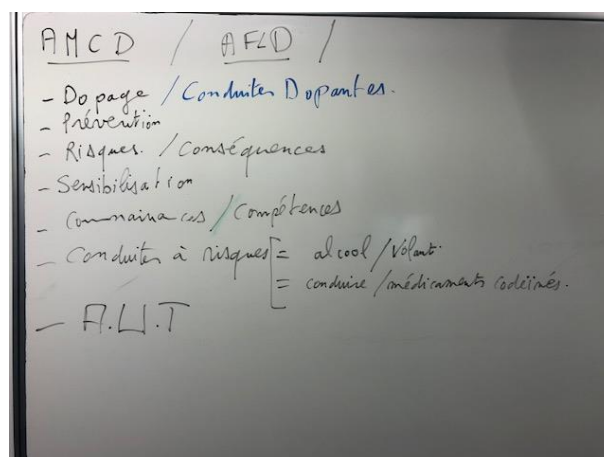 AMCD / AFLD /
- Dopage / Conduites Dopantes.
- Prévention
- Risques. / Conséquences
- Sensibilisation
- Connainances / Compétences
- Conduites à risques = alcool / Volant.
= conduire / médicaments codéïnés.
- A.U.T